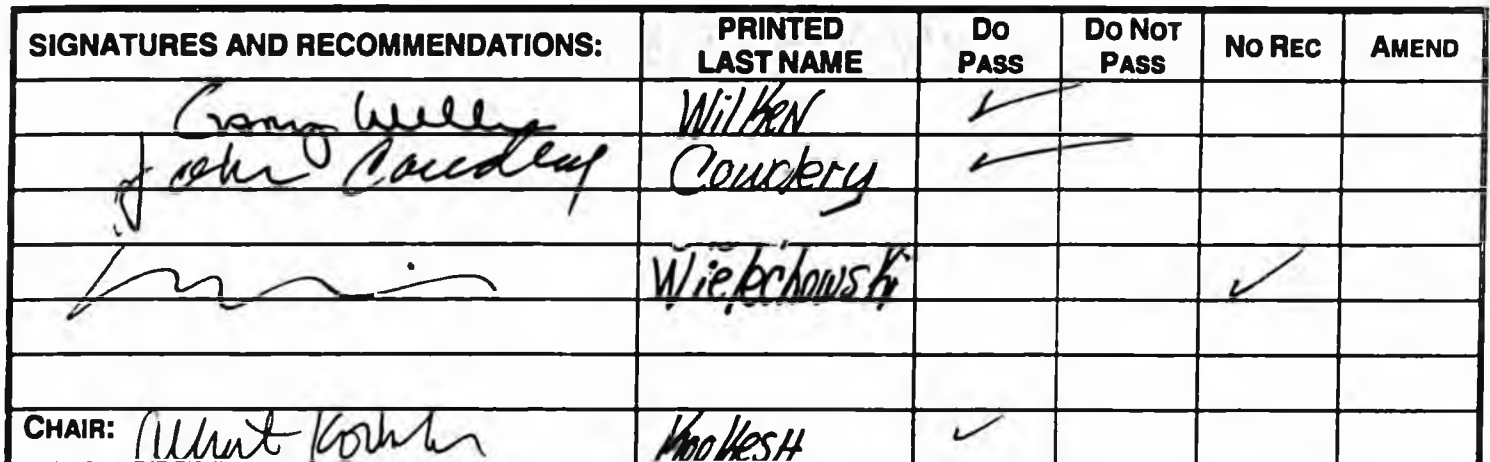 SIGNATURES AND RECOMMENDATIONS: PRINTED LAST NAME DO PASS DO NOT PASS NO REC AMEND
Wilken ✓
John Cowdery Cowdery ✓
Wielechowski ✓
CHAIR: Albert Kookesh Kookesh ✓